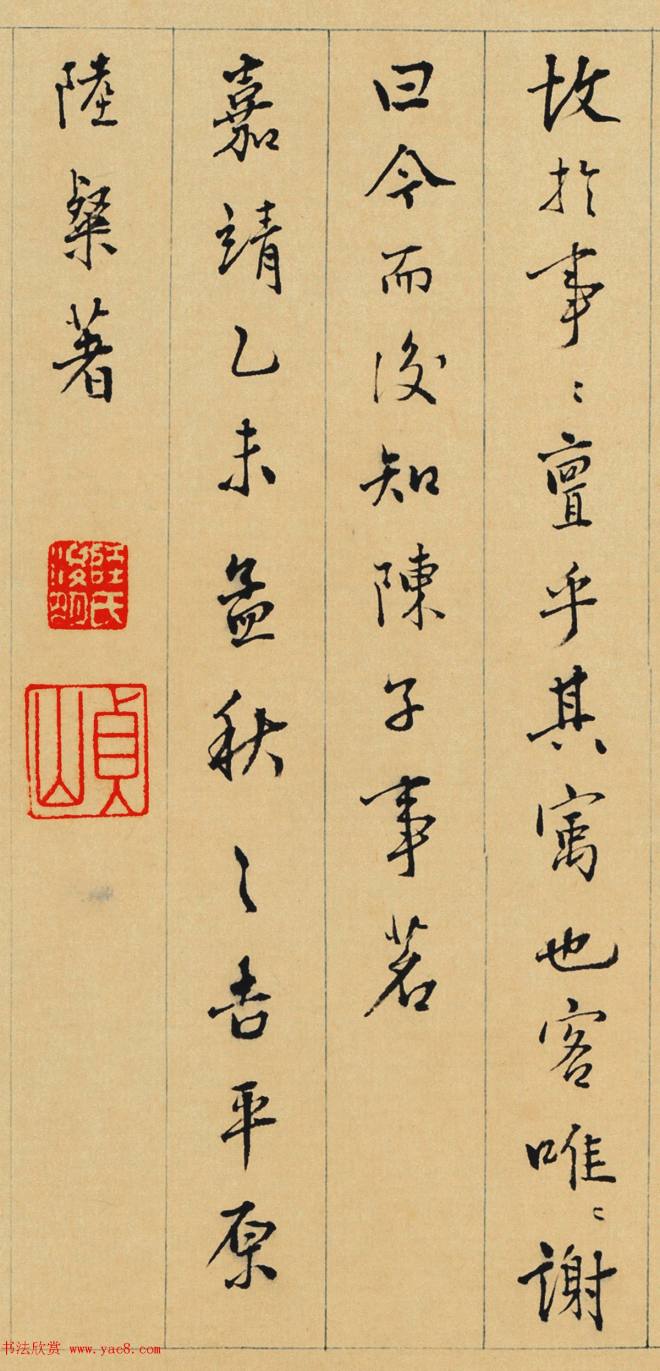 故扵事〻亶乎其寓也客唯〻謝
曰今而後知陳子事茗
嘉靖乙未孟秋之吉平原
陸粲著
陸氏浚明
貞山
书法欣赏 www.yac8.com